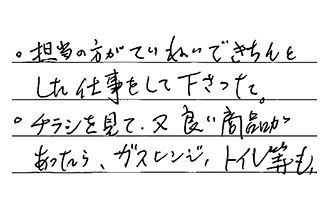 。担当の方がていねいできちんと
した仕事をして下さった。
。チラシを見て、又良い商品が
あったら、ガスレンジ、トイレ等も、